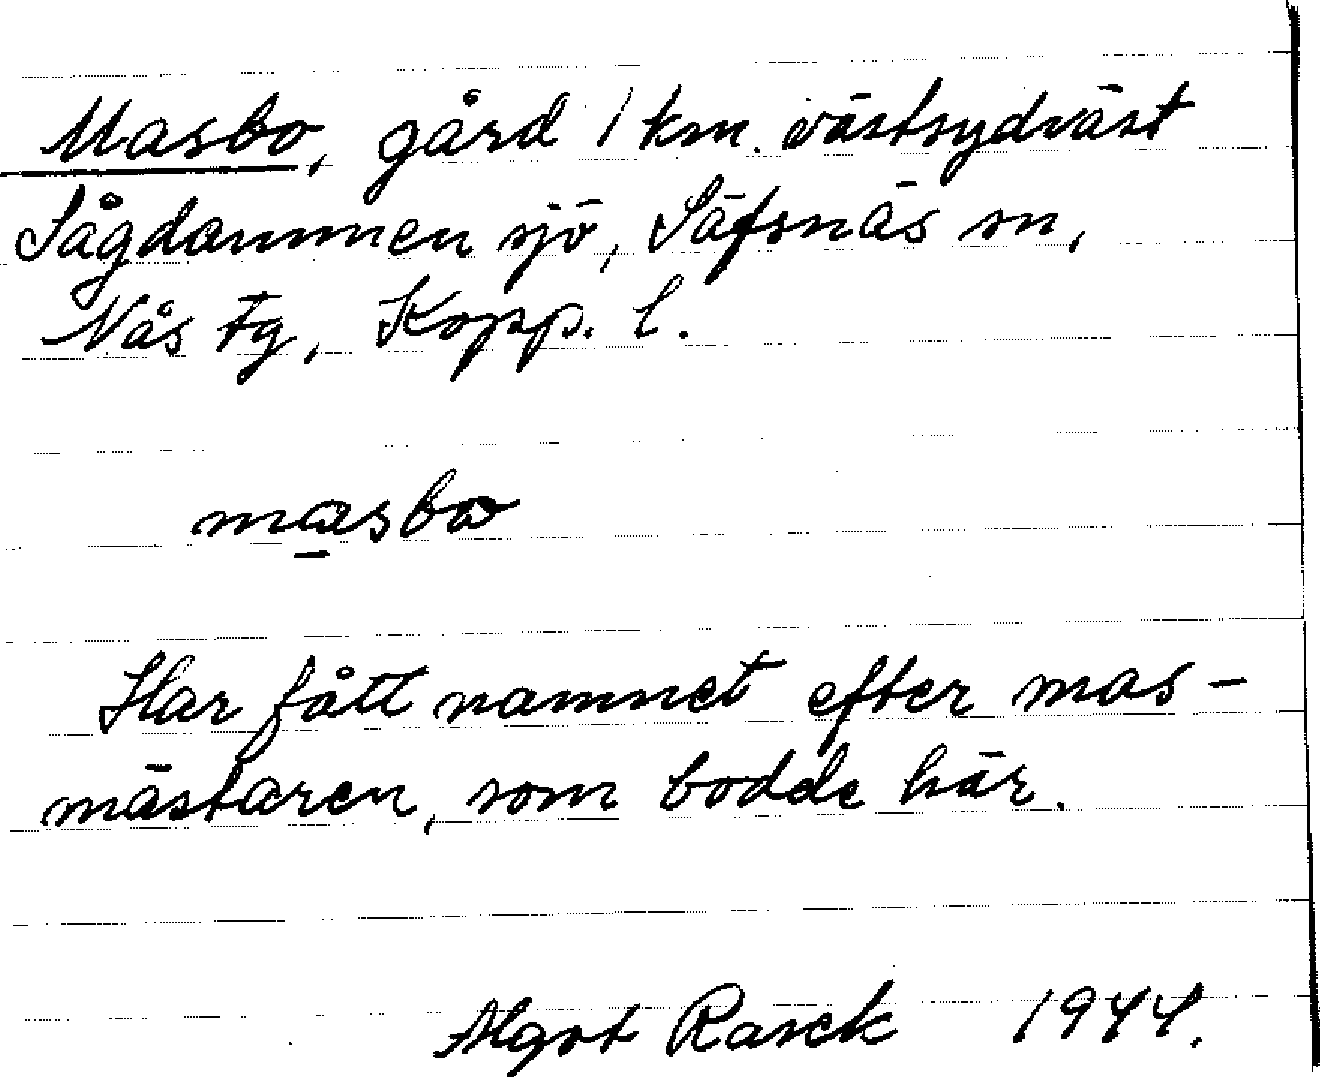 Masbo, gård 1 km. västsydväst
Sågdammen sjö, Säfsnäs sn,
Nås tg, Kopp. l.
masbo
Har fått namnet efter mas-
mästaren, som bodde här.
Algot Rasck 1944.